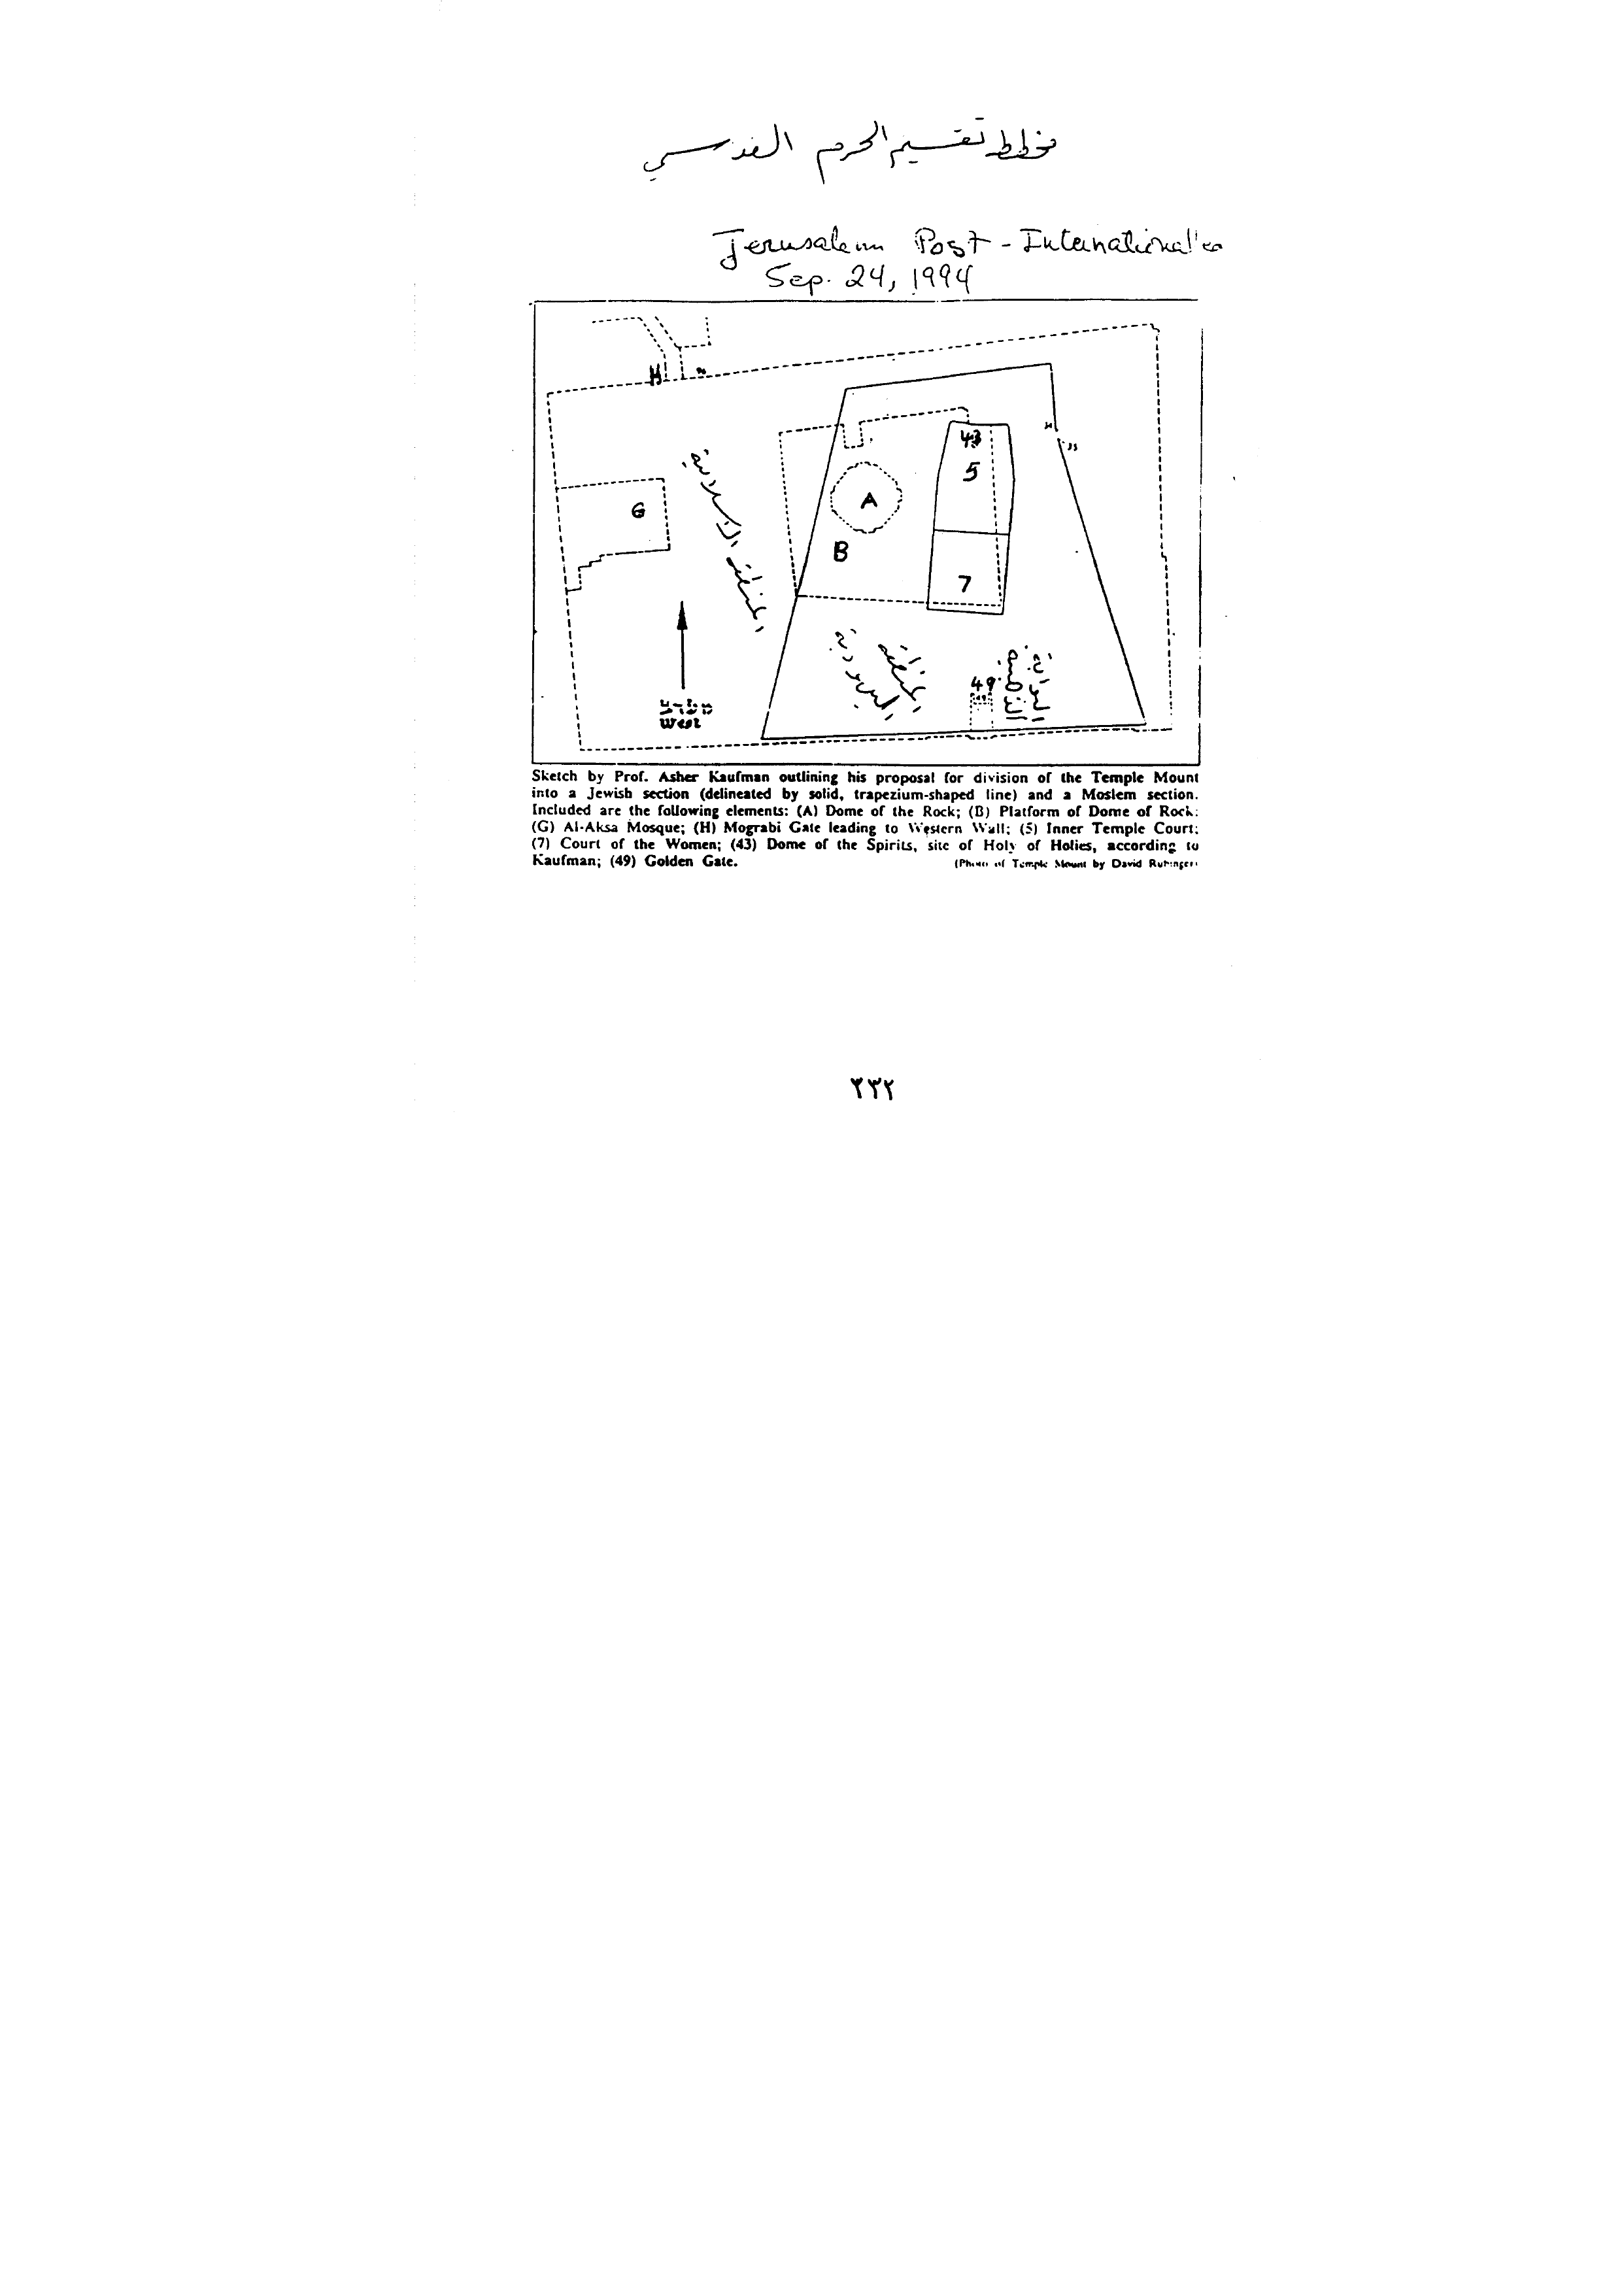 مخطط تقسيم الحرم القدسي
Jerusalem Post - International
Sep. 24, 1994
H
43
5
A
G
B
7
المنطقة الإسلامية
المنطقة
اليهودية
49
West
Sketch by Prof. Asher Kaufman outlining his proposal for division of the Temple Mount
into a Jewish section (delineated by solid, trapezium-shaped line) and a Moslem section.
Included are the following elements: (A) Dome of the Rock; (B) Platform of Dome of Rock;
(G) Al-Aksa Mosque; (H) Mograbi Gate leading to Western Wall; (5) Inner Temple Court;
(7) Court of the Women; (43) Dome of the Spirits, site of Holy of Holies, according to
Kaufman; (49) Golden Gate.
(Photo of Temple Mount by David Rubinger)
٣٣٢